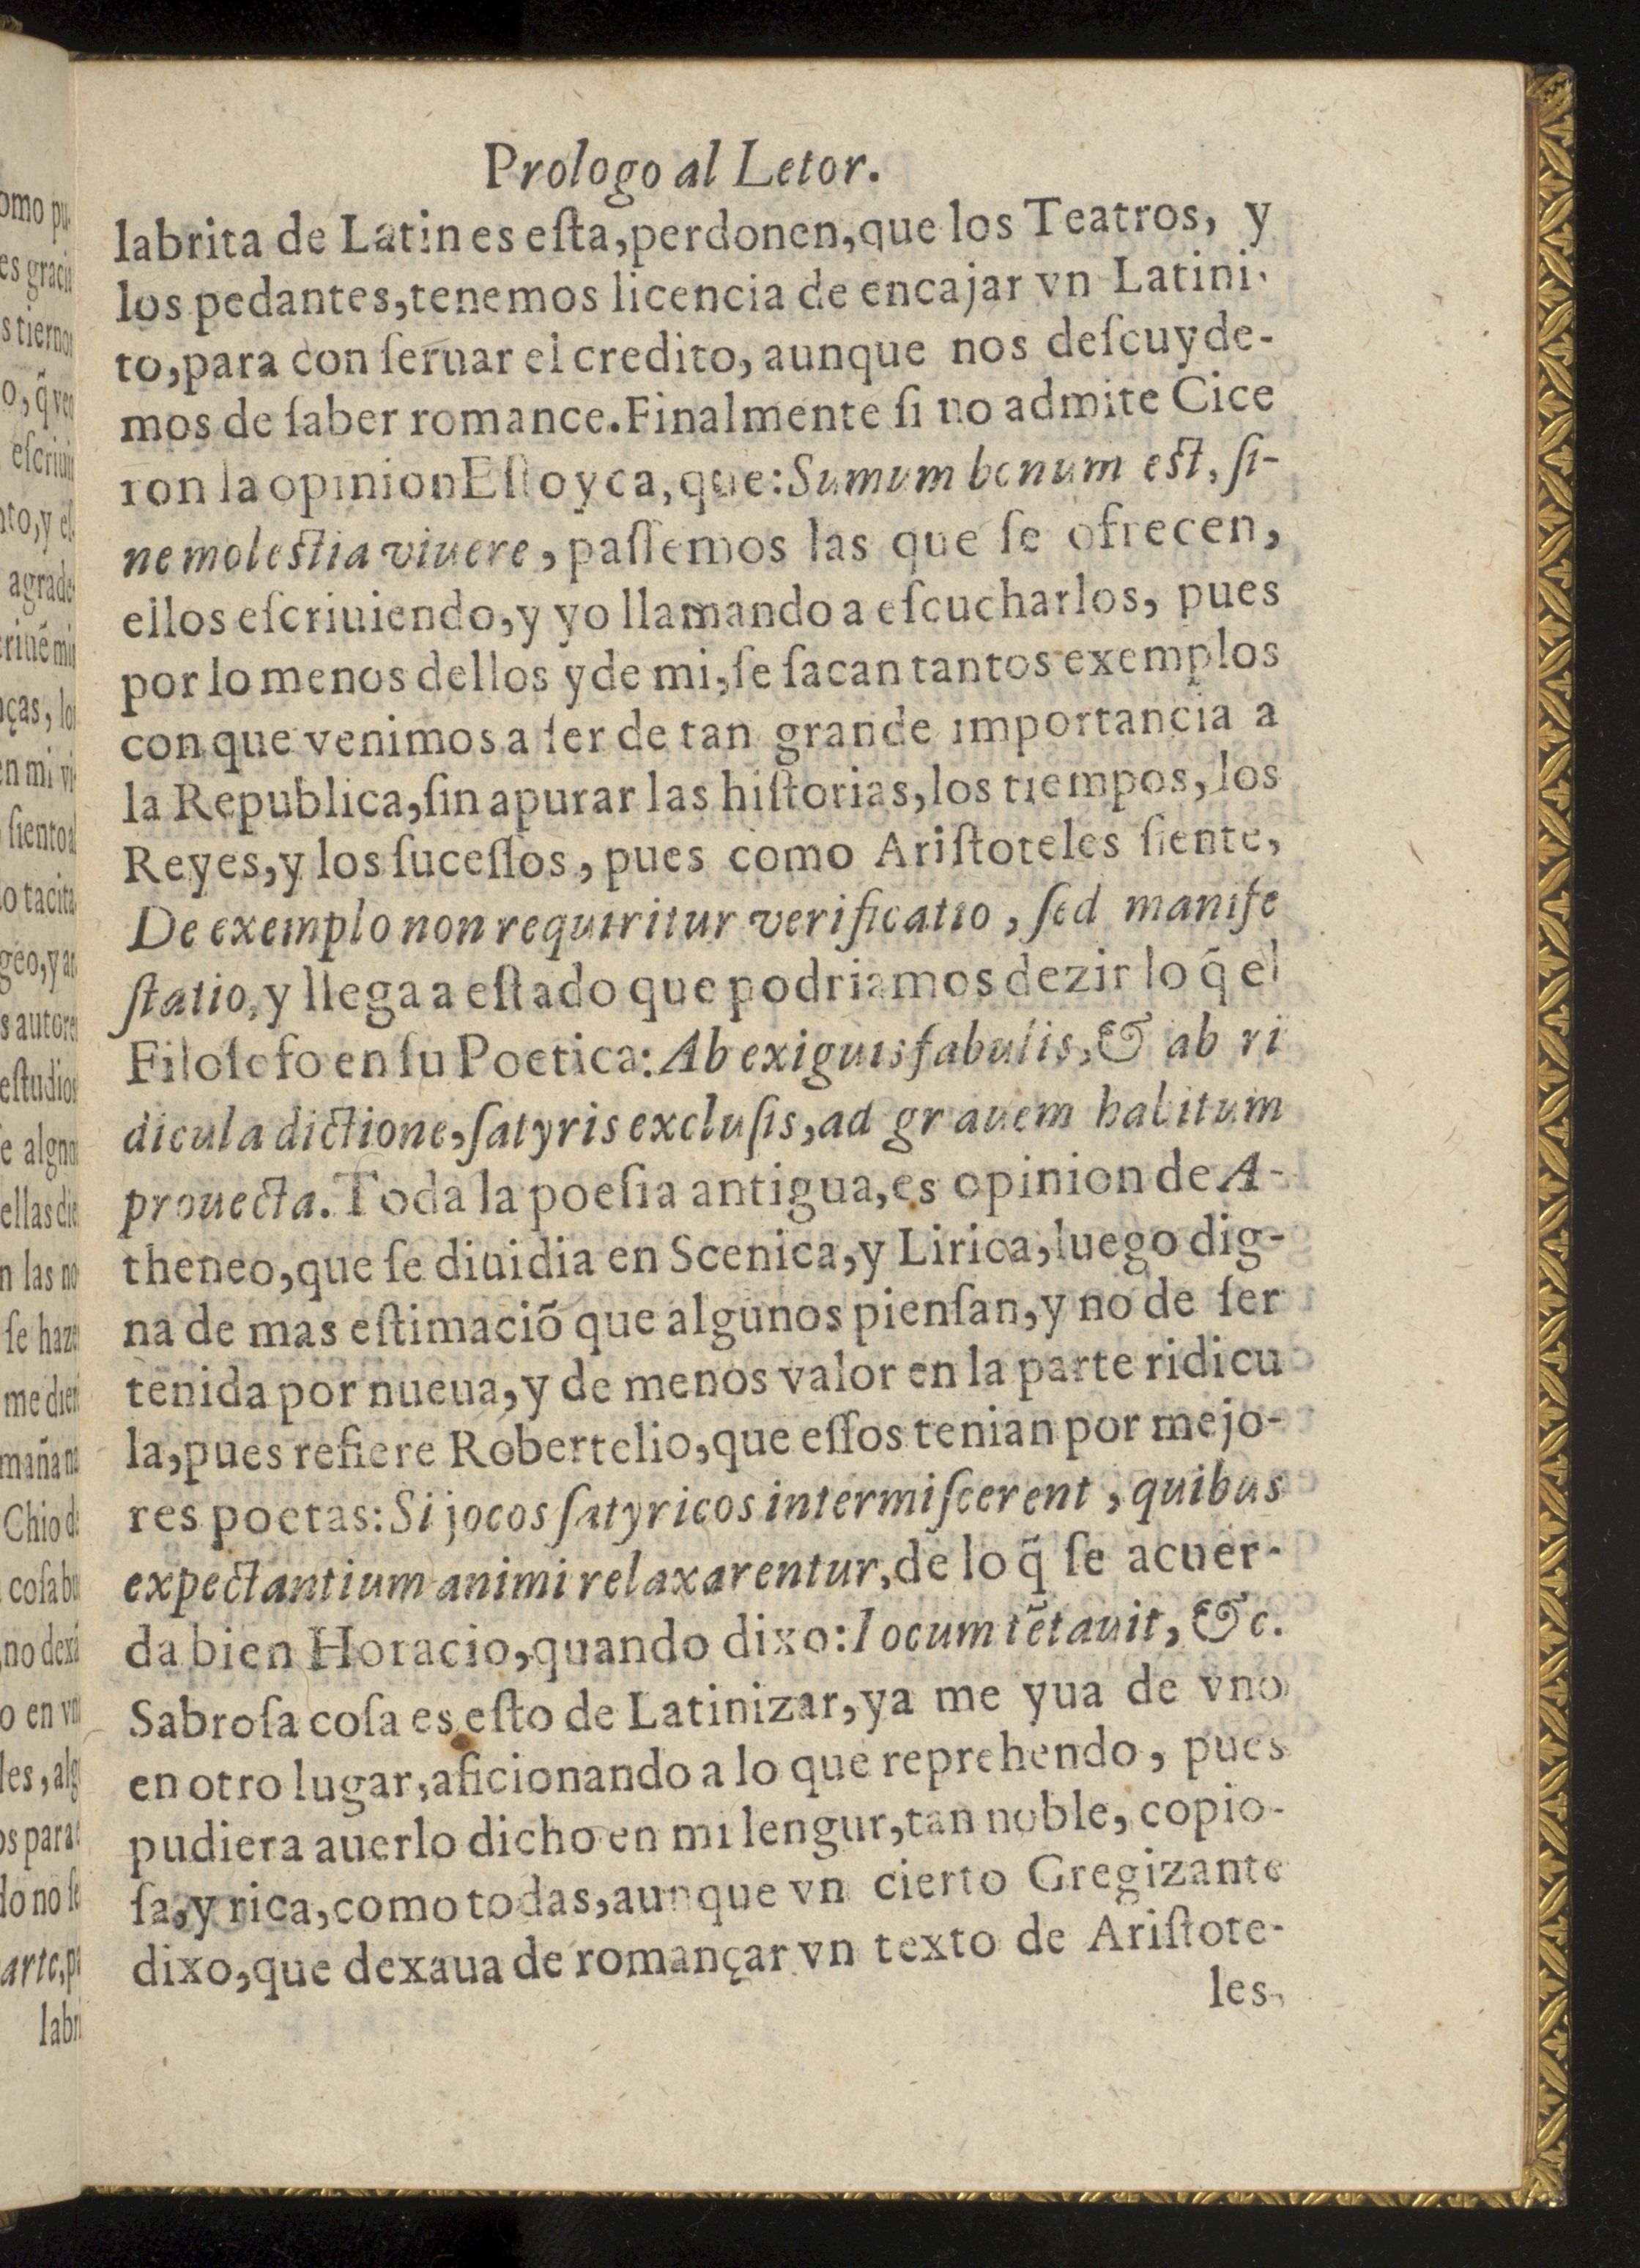 Prologo al Letor.
labrita de Latin es eſta, perdonen, que los Teatros, y
los pedantes, tenemos licencia de encajar vn Latini-
to, para con ſeruar el credito, aunque nos deſcuyde-
mos de ſaber romance. Finalmente ſi no admite Cice
ron la opinion Eſtoyca, que: Sumum bonum eſt, ſi-
ne moleſtia viuere, paſſemos las que ſe ofrecen,
ellos eſcriuiendo, y yo llamando a eſcucharlos, pues
por lo menos dellos y de mi, ſe ſacan tantos exemplos
con que venimos a ſer de tan grande importancia a
la Republica, ſin apurar las hiſtorias, los tiempos, los
Reyes, y los ſuceſſos, pues como Ariſtoteles ſiente,
De exemplo non requiritur verificatio, ſed manife
ſtatio, y llega a eſtado que podriamos dezir lo q̃ el
Filoſofo en ſu Poetica: Ab exiguis fabulis, & ab ri
dicula dictione, ſatyris excluſis, ad grauem habitum
prouecta. Toda la poeſia antigua, es opinion de A-
theneo, que ſe diuidia en Scenica, y Lirica, luego dig-
na de mas eſtimaciõ que algunos pienſan, y no de ſer
tenida por nueua, y de menos valor en la parte ridicu
la, pues refiere Robertelio, que eſſos tenian por mejo-
res poetas: Si jocos ſatyricos intermiſcerent, quibus
expectantium animi relaxarentur, de lo q̃ ſe acuer-
da bien Horacio, quando dixo: Iocum tẽtauit, &c.
Sabroſa coſa es eſto de Latinizar, ya me yua de vno
en otro lugar, aficionando a lo que reprehendo, pues
pudiera auerlo dicho en mi lengur, tan noble, copio-
ſa, y rica, como todas, aunque vn cierto Gregizante
dixo, que dexaua de romançar vn texto de Ariſtote-
les,